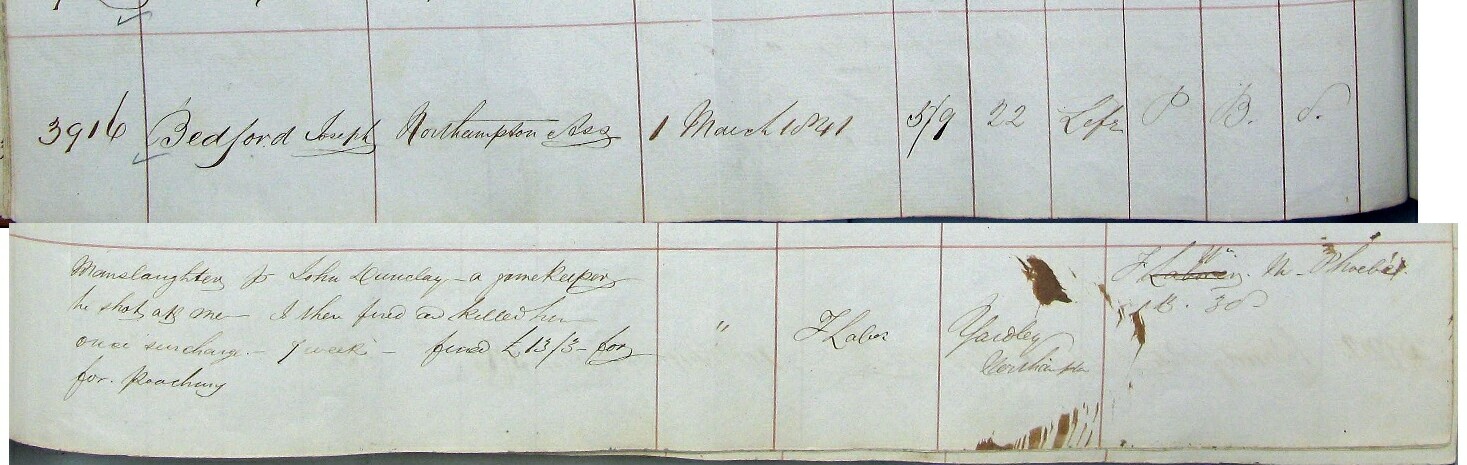 3916 Bedford Joseph Northampton Ass 1 March 1841 5/9 22 Life P B. S.
Manslaughter John Dunclay - a gamekeeper
he shot at me - I then fired and killed him
once - 9 week - fined £13/3 - for
for Poaching
" F Labor
Yardley
Northampton
F Labour Wm. M - Phoebe
1 B. 3 S